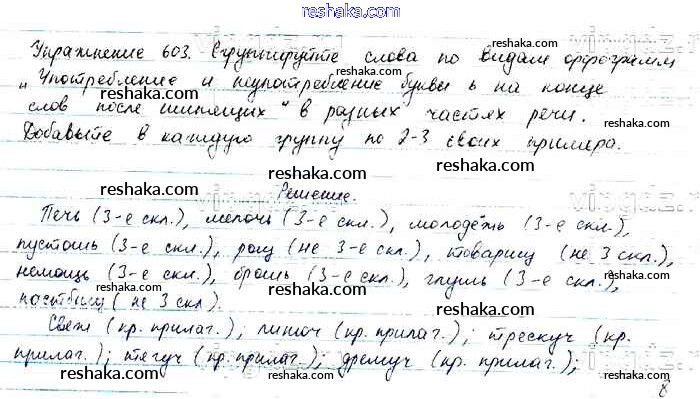 reshaka.com
Упражнение 603. Сгруппируйте слова по видам орфограмм
„Употребление и неупотребление буквы ь на конце
слов после шипящих" в разных частях речи.
Добавьте в каждую группу по 2-3 своих примера.
Решение.
Печь (3-е скл.), мелочь (3-е скл.), молодёжь (3-е скл.),
пустошь (3-е скл.), рощ (не 3-е скл.), товарищ (не 3 скл.),
немощь (3-е скл.), брошь (3-е скл.), глушь (3-е скл.),
пастбищ (не 3 скл).
Свеж (кр. прилаг.); пшюч (кр. прилаг.); трескуч (кр.
прилаг.); тягуч (кр. прилаг.); дремуч (кр. прилаг.);
reshaka.com
8